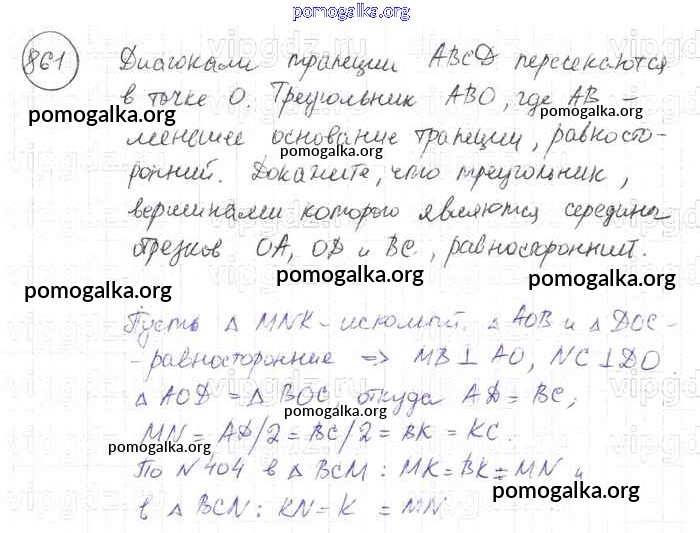 pomogalka.org
861 Диагонали трапеции ABCD пересекаются
в точке O. Треугольник ABO, где AB –
pomogalka.org pomogalka.org
меньшее основание трапеции, равносто-
pomogalka.org
ронний. Докажите, что треугольник,
вершинами которого являются середины
отрезков OA, OD и BC, равносторонний.
pomogalka.org pomogalka.org
Пусть △ MNK – искомый. △ AOB и △ DOC –
pomogalka.org
- равносторонние ⇒ MB ⊥ AO, NC ⊥ DO
△ AOD = △ BOC, откуда AD = BC,
pomogalka.org
MN = AD/2 = BC/2 = BK = KC.
pomogalka.org
По N 404 в △ BCM: MK = BK = MN и
pomogalka.org
в △ BCN: KN = K = MN